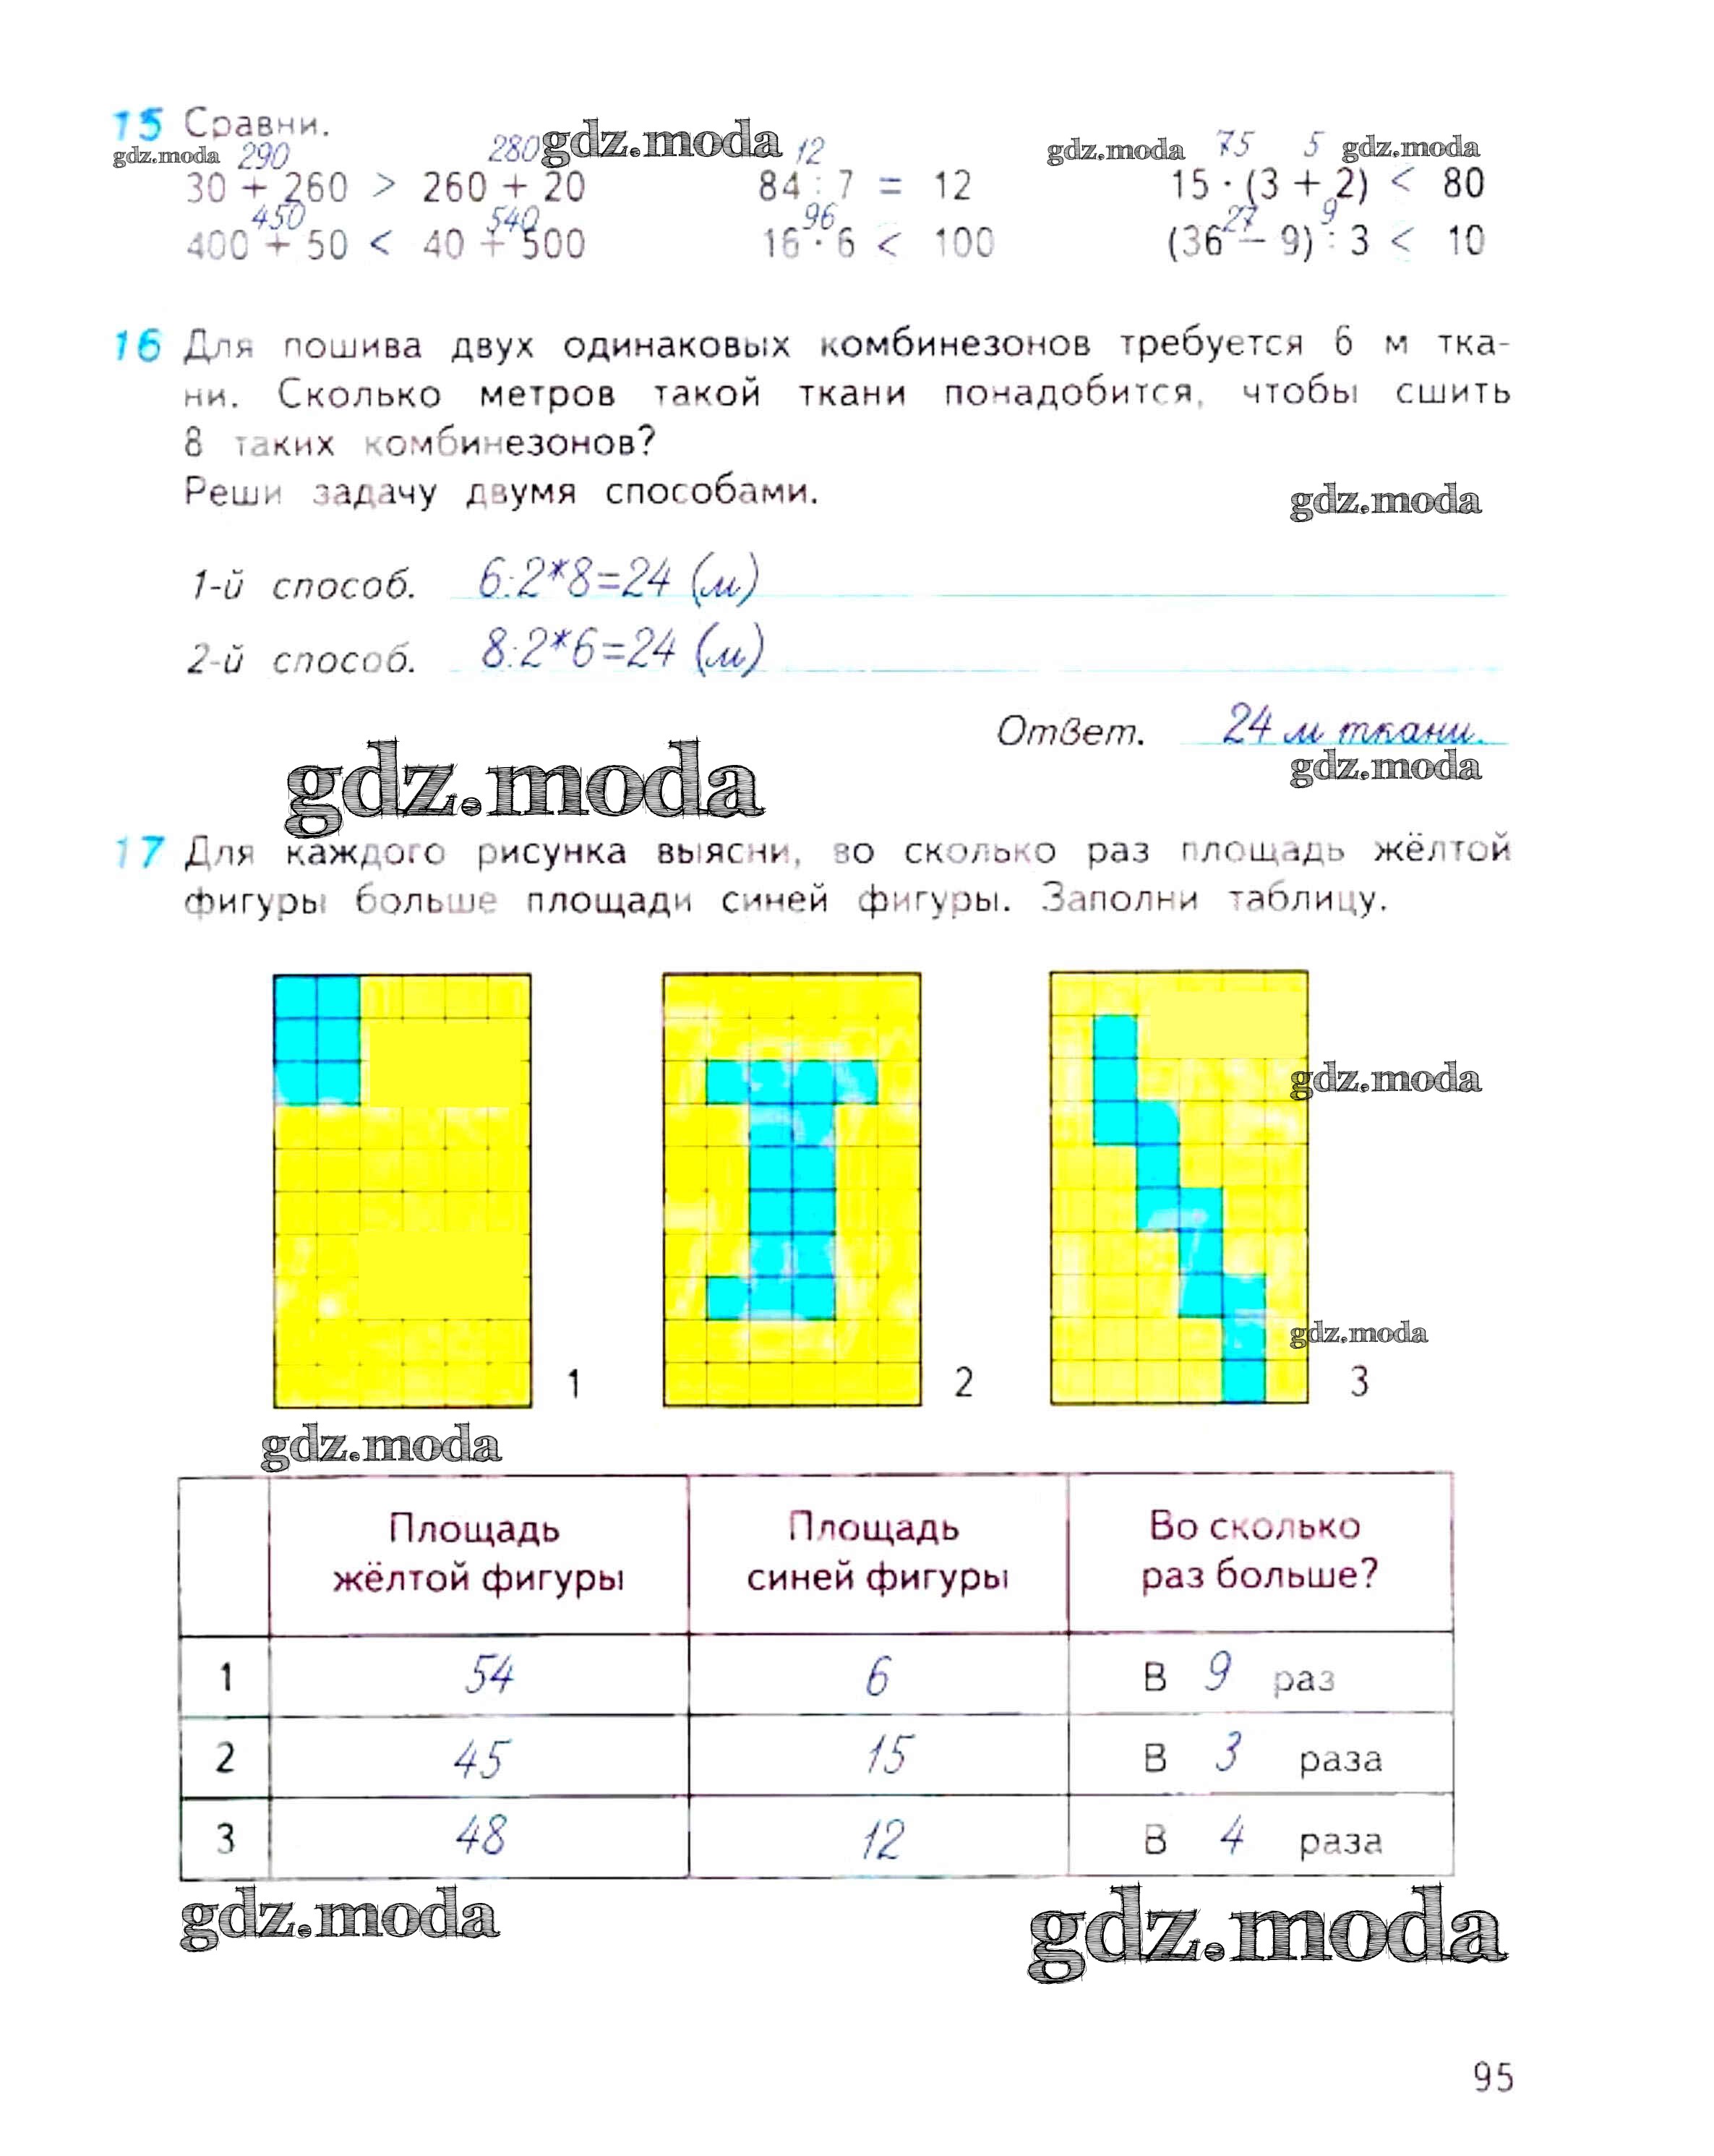 15 Сравни.
gdz.moda 290 280 gdz.moda 12 gdz.moda 75 5 gdz.moda
30 + 260 > 260 + 20 84 : 7 = 12 15 · (3 + 2) < 80
450 540 96 27 9
400 + 50 < 40 + 500 16 · 6 < 100 (36 − 9) : 3 < 10
16 Для пошива двух одинаковых комбинезонов требуется 6 м тка-
ни. Сколько метров такой ткани понадобится, чтобы сшить
8 таких комбинезонов?
Реши задачу двумя способами.
gdz.moda
1-й способ. 6:2*8=24 (м)
2-й способ. 8:2*6=24 (м)
Ответ. 24 м ткани.
gdz.moda
gdz.moda
17 Для каждого рисунка выясни, во сколько раз площадь жёлтой
фигуры больше площади синей фигуры. Заполни таблицу.
gdz.moda
gdz.moda
1 2 3
gdz.moda
Площадь жёлтой фигуры Площадь синей фигуры Во сколько раз больше?
1 54 6 В 9 раз
2 45 15 В 3 раза
3 48 12 В 4 раза
gdz.moda gdz.moda
95